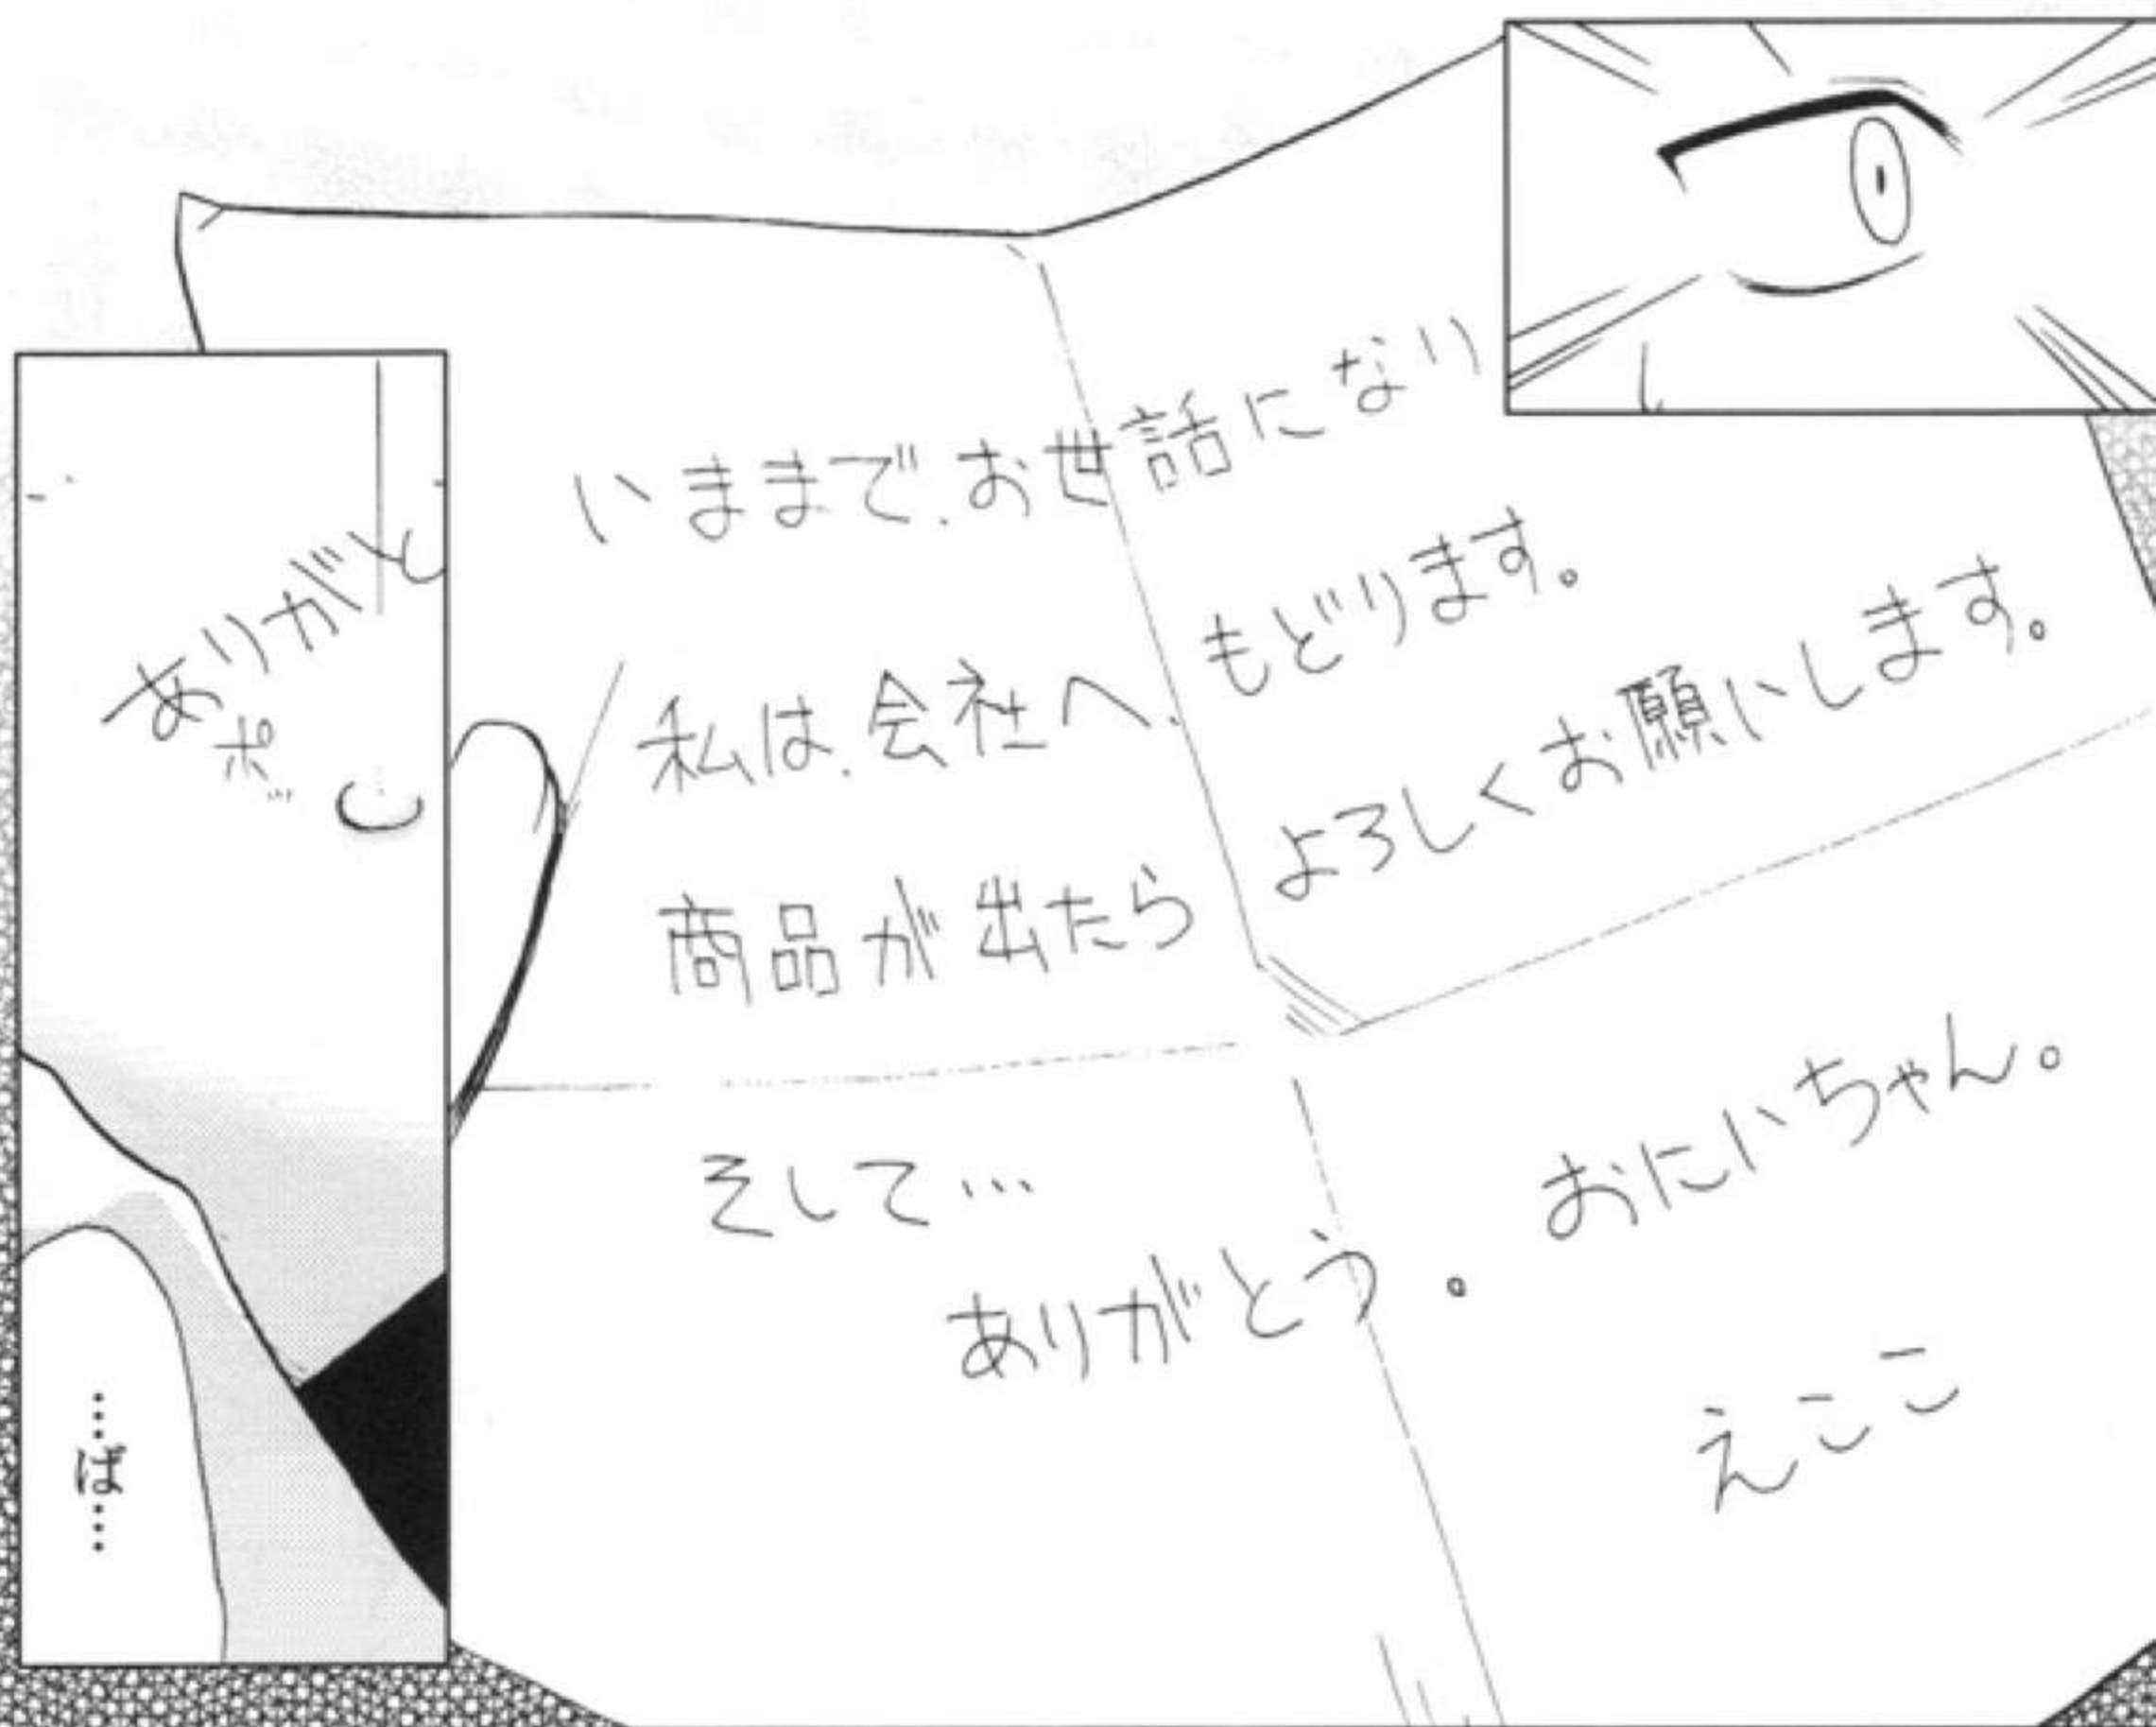 いままで、お世話になり
私は、会社へ、もどります。
商品が出たら よろしくお願いします。
そして…
ありがとう。おにいちゃん。
えここ
ありがと
ポ
……ぽ……